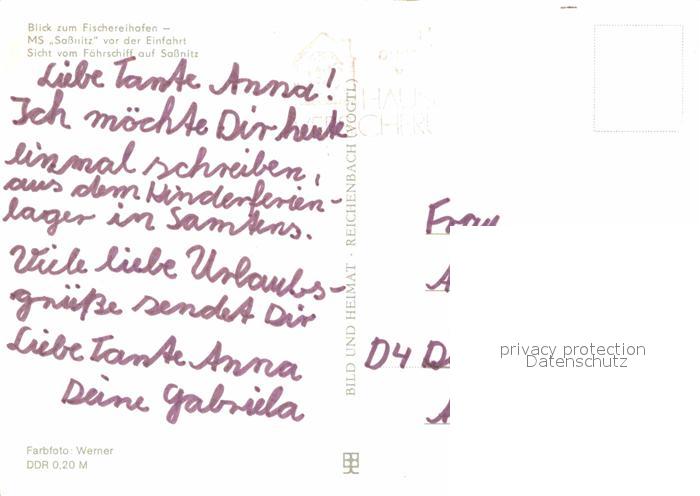 Blick zum Fischereihafen –
MS „Saßnitz" vor der Einfahrt
Sicht vom Fährschiff auf Saßnitz
Liebe Tante Anna!
Ich möchte Dir heute
einmal schreiben,
aus dem Kinderferien-
lager in Samtens.
Viele liebe Urlaubs-
grüße sendet Dir
Liebe Tante Anna
Deine Gabriela
Farbfoto: Werner
DDR 0,20 M
BILD UND HEIMAT · REICHENBACH (VOGTL)
Frau
A
D4 D
A
privacy protection
Datenschutz